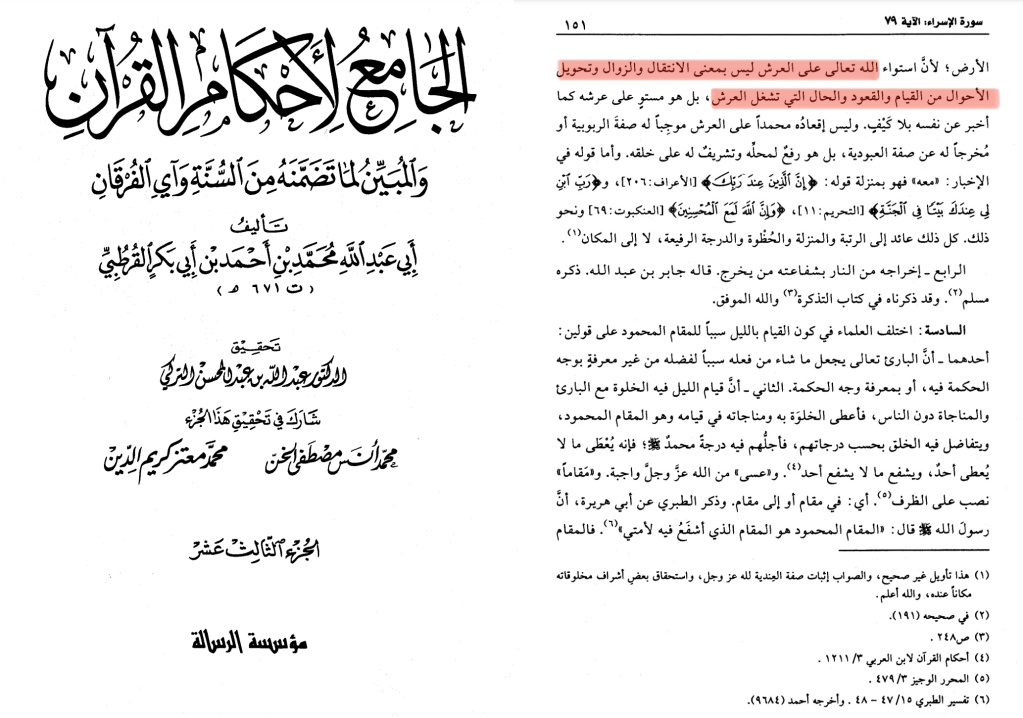 الجَامِعُ لِأَحْكَامِ القُرْآنِ
وَالمُبَيِّنُ لِمَا تَضَمَّنَهُ مِنَ السُّنَّةِ وَآيِ الفُرْقَانِ
تَأليفُ
أَبِي عَبْدِ اللهِ مُحَمَّدِ بْنِ أَحْمَدَ بْنِ أَبِي بَكْرٍ القُرْطُبِيِّ
( ت ٦٧١ هـ )
تَحقِيْق
الدكتور عبد الله بن عبد المحسن التركي
شَارَكَ فِي تَحْقِيْقِ هَذَا الجُزْءِ
محمد أنس مصطفى الخن محمد معتز كريم الدين
الجُزءُ الثَّالِثَ عَشَرَ
مؤسسة الرسالة
سورة الإسراء: الآية ٧٩ ١٥١
الأرض؛ لأنَّ استواء الله تعالى على العرش ليس بمعنى الانتقال والزوال وتحويل
الأحوال من القيام والقعود والحال التي تشغل العرش، بل هو مستوٍ على عرشه كما
أخبر عن نفسه بلا كَيْفٍ. وليس إقعادُه محمداً على العرش موجِباً له صفةَ الربوبية أو
مُخرجاً له عن صفة العبودية، بل هو رفعٌ لمحلِّه وتشريفٌ له على خلقه. وأما قوله في
الإخبار: «معه» فهو بمنزلة قوله: ﴿إِنَّ الَّذِينَ عِندَ رَبِّكَ﴾ [الأعراف:٢٠٦]، و﴿رَبِّ ابْنِ
لِي عِندَكَ بَيْتًا فِي الْجَنَّةِ﴾ [التحريم:١١]، ﴿وَإِنَّ اللَّهَ لَمَعَ الْمُحْسِنِينَ﴾ [العنكبوت:٦٩] ونحو
ذلك. كل ذلك عائد إلى الرتبة والمنزلة والحُظْوة والدرجة الرفيعة، لا إلى المكان(١).
الرابع ـ إخراجه من النار بشفاعته من يخرج. قاله جابر بن عبد الله. ذكره
مسلم(٢). وقد ذكرناه في كتاب التذكرة(٣) والله الموفق.
السادسة: اختلف العلماء في كون القيام بالليل سبباً للمقام المحمود على قولين:
أحدهما ـ أنَّ البارئ تعالى يجعل ما شاء من فعله سبباً لفضله من غير معرفةٍ بوجه
الحكمة فيه، أو بمعرفة وجه الحكمة. الثاني ـ أنَّ قيام الليل فيه الخلوة مع البارئ
والمناجاة دون الناس، فأعطى الخلوَة به ومناجاته في قيامه وهو المقام المحمود،
ويتفاضل فيه الخلق بحسب درجاتهم، فأجلُّهم فيه درجةً محمدٌ ﷺ؛ فإنه يُعْطَى ما لا
يُعطى أحدٌ، ويشفع ما لا يشفع أحد(٤). و«عسى» من الله عزَّ وجلَّ واجبة. و«مَقاماً»
نصب على الظرف(٥). أي: في مقام أو إلى مقام. وذكر الطبري عن أبي هريرة، أنَّ
رسولَ الله ﷺ قال: «المقام المحمود هو المقام الذي أشفَعُ فيه لأمتي»(٦). فالمقام
(١) هذا تأويل غير صحيح، والصواب إثبات صفة العِندية لله عز وجل، واستحقاق بعضِ أشراف مخلوقاته
مكاناً عنده، والله أعلم.
(٢) في صحيحه (١٩١).
(٣) ص٢٤٨ .
(٤) أحكام القرآن لابن العربي ٣/ ١٢١١ .
(٥) المحرر الوجيز ٣/ ٤٧٩ .
(٦) تفسير الطبري ١٥/ ٤٧ – ٤٨ . وأخرجه أحمد (٩٦٨٤).